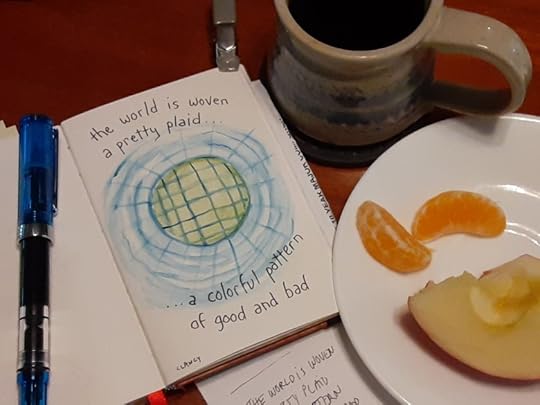 the world is woven
a pretty plaid...
...a colorful pattern
of good and bad
CLANCY
THE WORLD IS WOVEN
PLAID